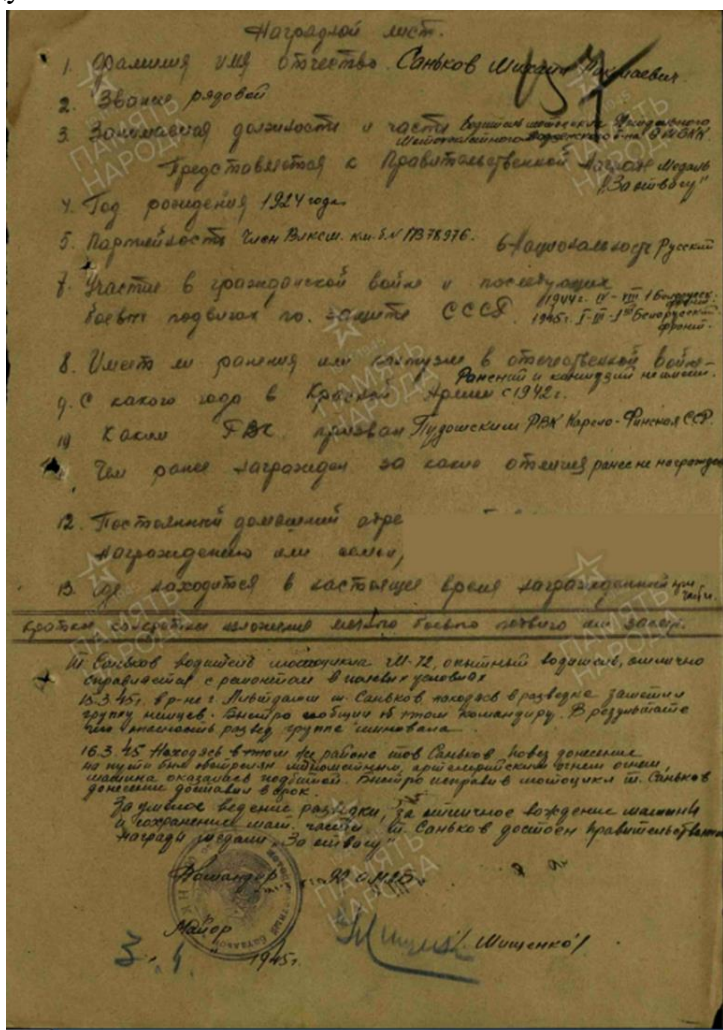 Наградной лист.
157
1. Фамилия имя отчество Саньков Михаил
2. Звание рядовой
3. Занимаемая должность и часть Водитель мотоцикла
Представляется к Правительственной награде Медаль
"За отвагу"
4. Год рождения 1924 года
5. Партийность Член Влксм. км. б. № 6. Национальность Русский
7. Участие в гражданской войне и последующих
боевых подвигах по защите СССР. 1944г. IV - VIII 1 Белорусск.
1945г. I-III-1ый Белорусский
фронт.
8. Имеет ли ранения или контузии в отечественной войне-
Ранений и контузий не имеет.
9. С какого года в Красной Армии с 1942г.
10 Каким РВК призван Пудожским РВК Карело-Финской ССР.
Чем ранее награжден за какие отличия ранее не награжден
12. Постоянный домашний
награждению или семьи,
13. Где находится в настоящее время награжденный
Краткое конкретное изложение личного боевого подвига или заслуг.
т. Саньков водитель мотоцикла М-72, опытный водитель, отлично
справляется с ремонтом в полевых условиях
15.3.45г. в р-не г. т. Саньков находясь в разведке заметил
группу немцев. Быстро сообщил об этом командиру. В результате
развед. группа
16.3.45 Находясь в этом же районе тов Саньков повез донесение
на пути был обстрелян артиллерийским огнем
машина оказалась подбитой. Быстро исправив мотоцикл т. Саньков
донесение доставил в срок.
За умелое ведение разведки, за отличное вождение машины
и сохранение мат. части т. Саньков достоин Правительственной
награды медали "За отвагу"
Командир ОМЦБ
Майор /Мищенко/
1945г.
ПАМЯТЬ
НАРОДА